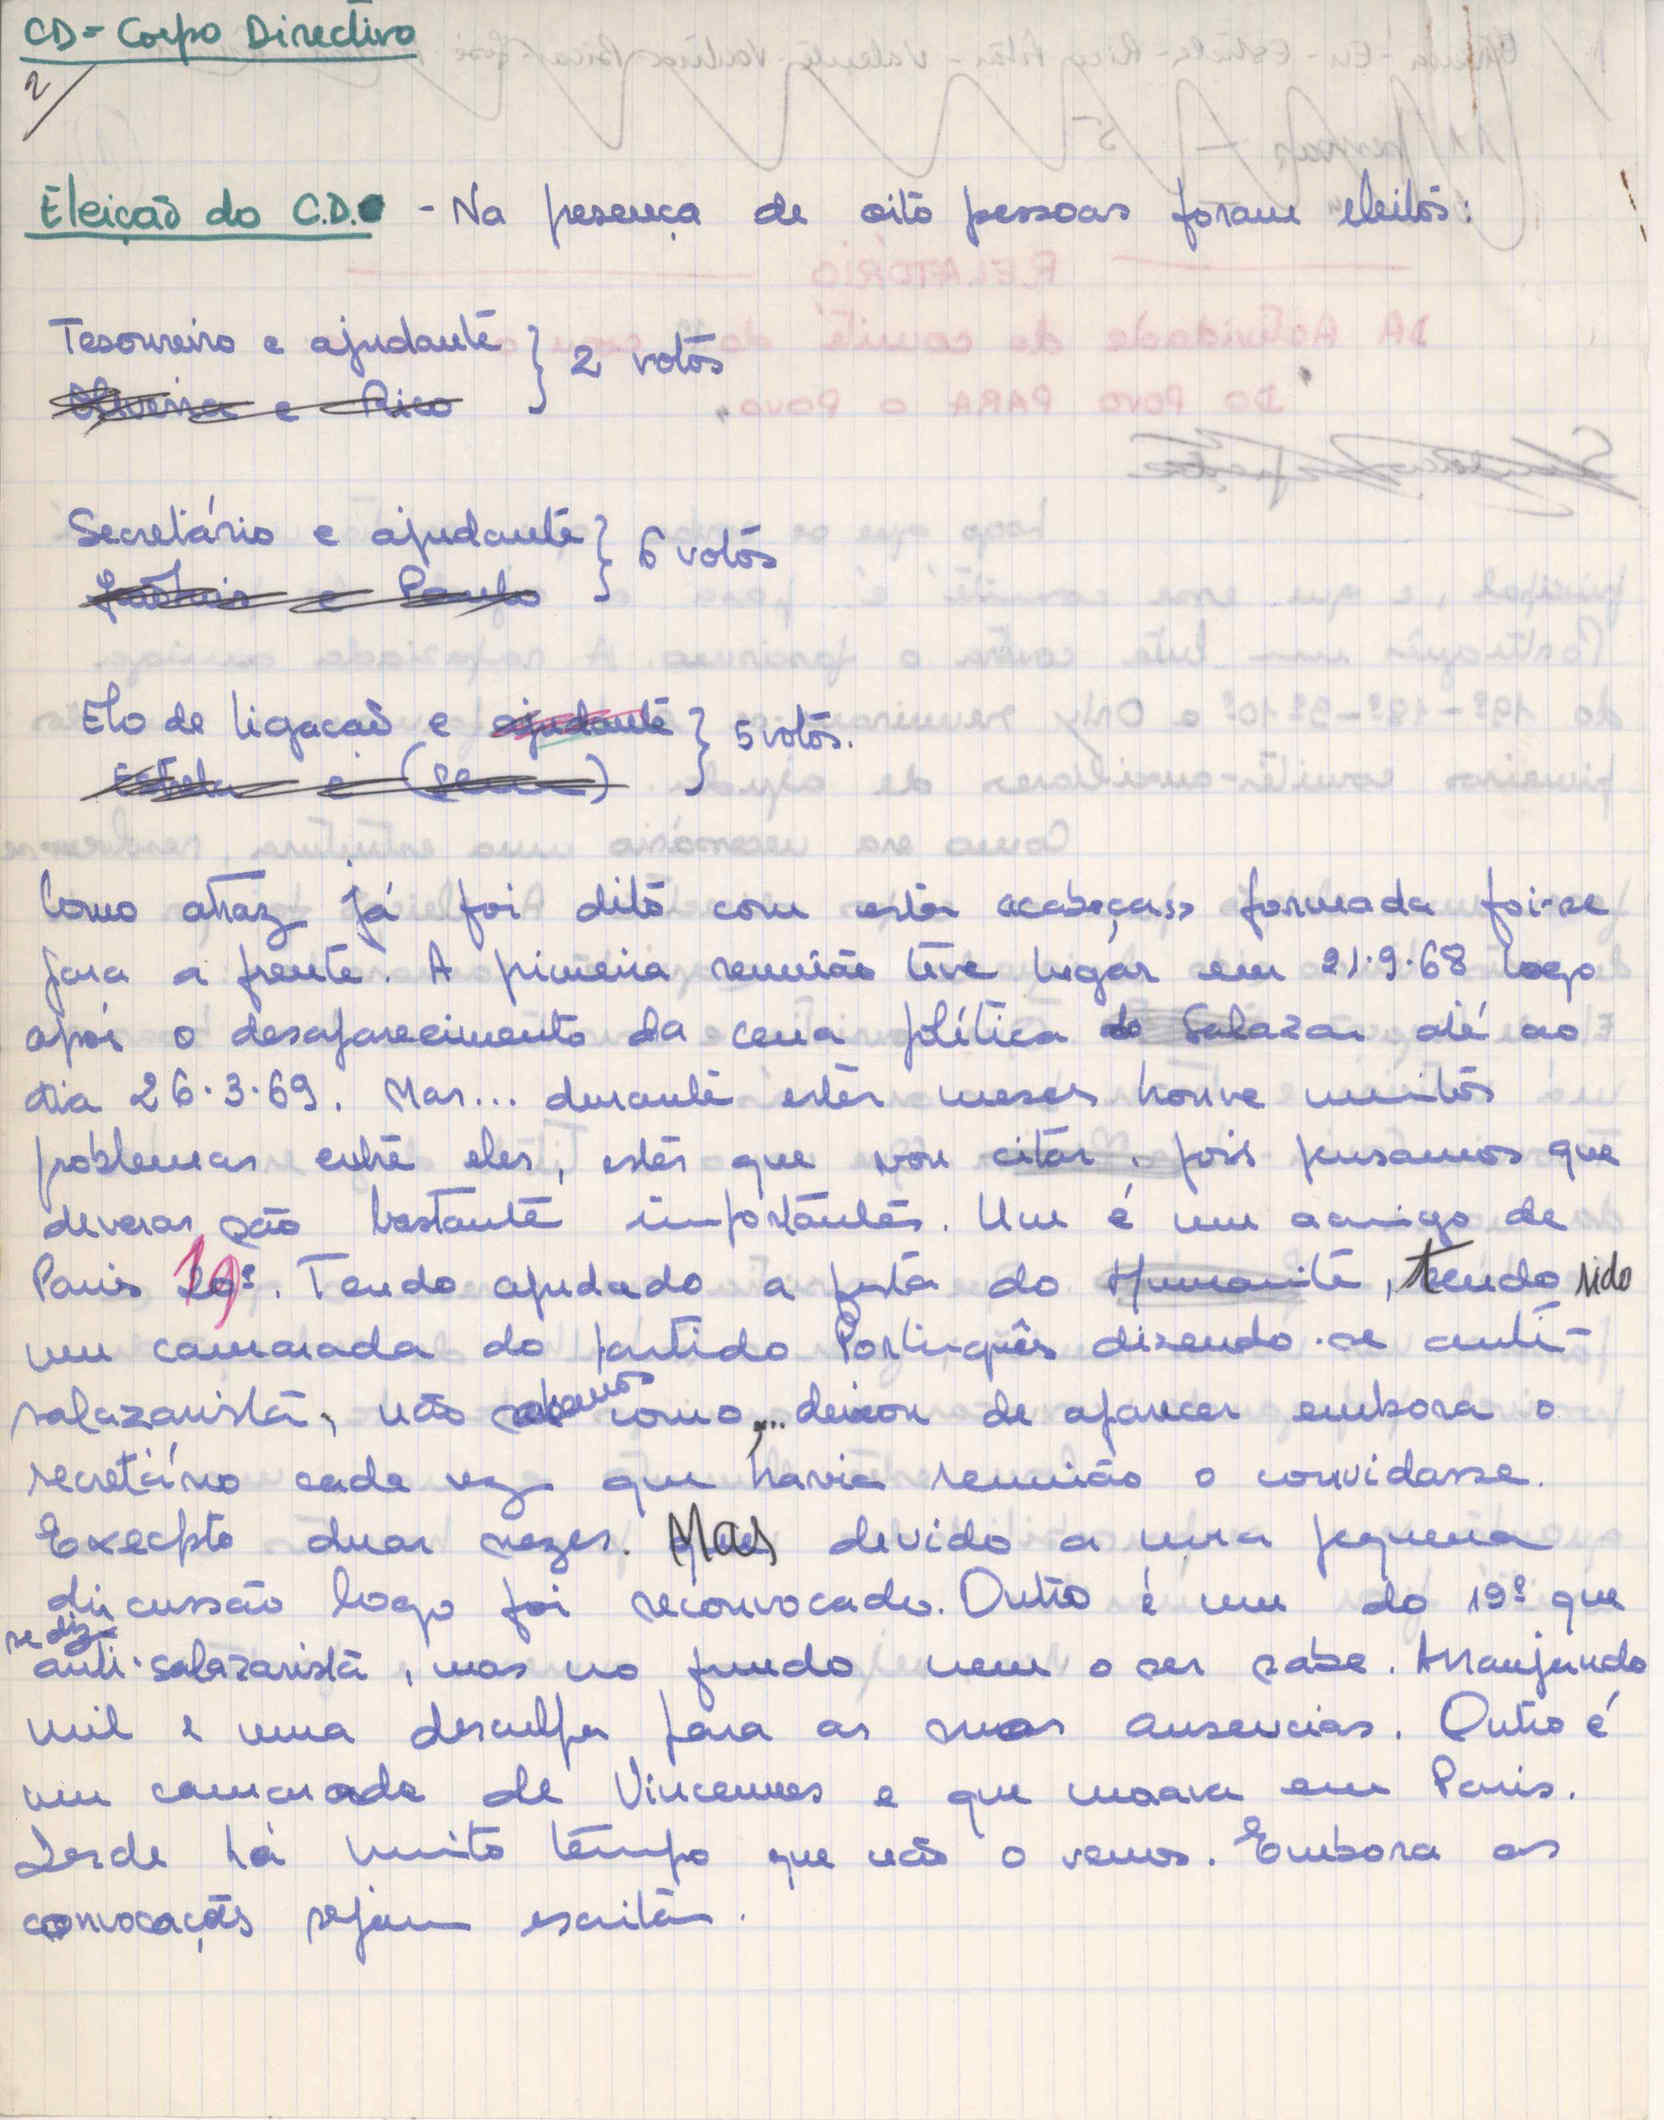 CD = Corpo Directivo
2/
Eleição do C.D. - Na presença de oito pessoas foram eleitos:
Tesoureiro e ajudante } 2 votos
Oliveira e Rico
Secretário e ajudante } 6 votos
e Paulo
Elo de ligacaõ e ajudante } 5 votos.
Estrela e
Como atraz já foi dito com esta «cabeça» formada foi-se
para a frente. A primeira reunião teve lugar em 21.9.68 logo
após o desaparecimento da cena política de Salazar até ao
dia 26.3.69. Mas... durante estes meses houve muitos
problemas entre eles, estes que vou citar. pois pensamos que
deveras são bastante importantes. Um é um amigo de
Paris 19º. Tendo ajudado a festa do Humanité, tendo sido
um camarada do partido Português dizendo-se anti-
salazarista, não sabemos como,... deixou de aparecer embora o
secretário cada vez que havia reunião o convidasse.
Execpto duas vezes. Mas devido a uma pequena
discussão logo foi reconvocado. Outro é um do 19º que
se diz anti-salazarista, mas no fundo nem o ser sabe. Arranjando
mil e uma desculpa para as suas ausencias. Outro é
um camarada de Vincennes e que morava em Paris.
Desde há muito tempo que não o vemos. Embora as
convocações sejam escritas.